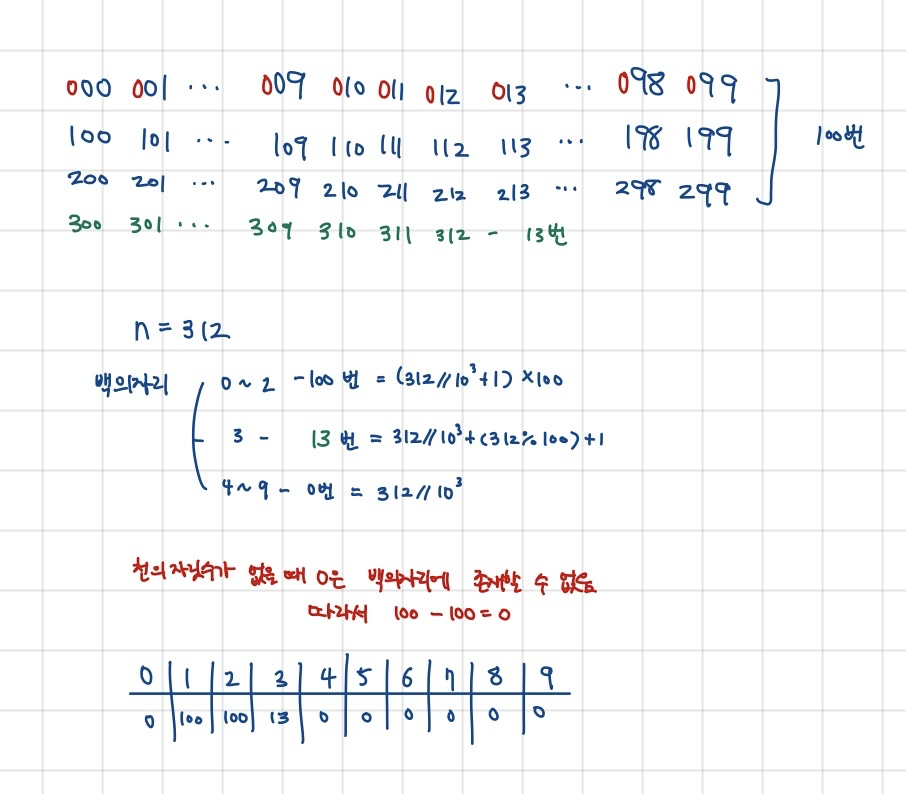 000 001 ... 009 010 011 012 013 ... 098 099
100 101 ... 109 110 111 112 113 ... 198 199 100번
200 201 ... 209 210 211 212 213 ... 298 299
300 301 ... 309 310 311 312 - 13번
n = 312
백의자리 0 ~ 2 - 100 번 = (312//10³+1) × 100
3 - 13 번 = 312//10³+(312%100)+1
4 ~ 9 - 0번 = 312//10³
천의 자릿수가 없을 때 0은 백의자리에 존재할 수 없음
따라서 100 - 100 = 0
0 1 2 3 4 5 6 7 8 9
0 100 100 13 0 0 0 0 0 0